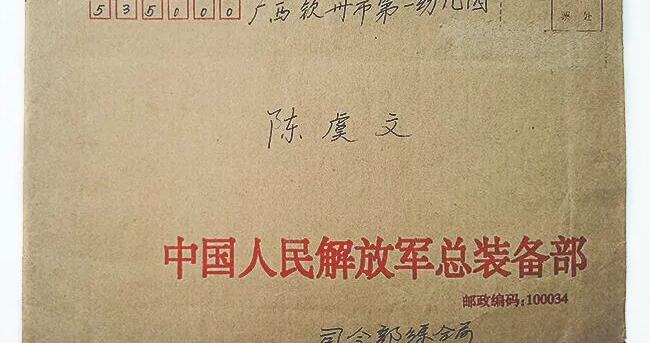 535000
广西钦州市第一幼儿园
票处
陈虞文
中国人民解放军总装备部
邮政编码:100034
司令部综合局